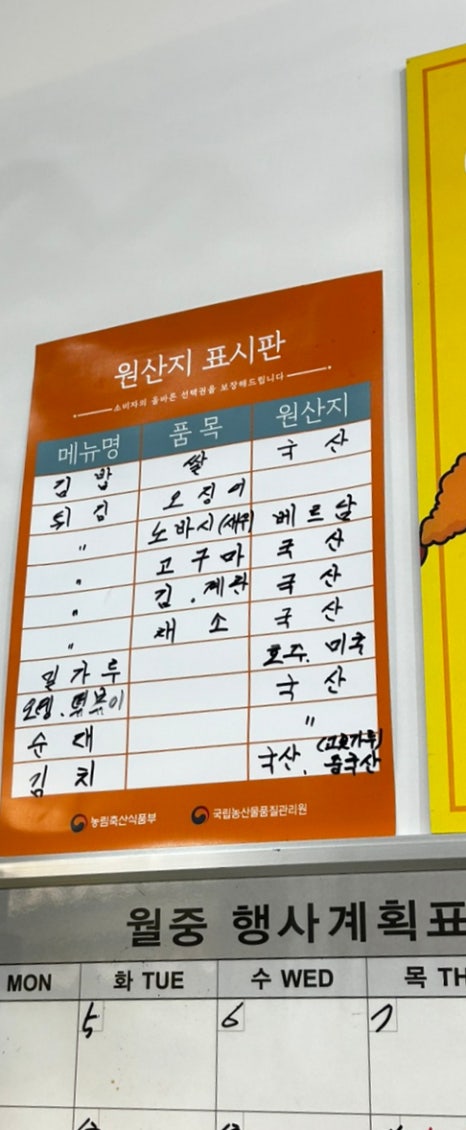 원산지 표시판
소비자의 올바른 선택권을 보장해드립니다
메뉴명 품목 원산지
김밥 쌀 국산
튀김 오징어
〃 노바시(새우) 베르남
〃 고구마 국산
〃 김.계란 국산
〃 채소 국산
밀가루 호주. 미국
오뎅.떡볶이 국산
순대 〃
김치 국산. (고춧가루) 중국산
농림축산식품부 국립농산물품질관리원
월중 행사계획표
MON 화 TUE 수 WED 목 TH
5 6 7